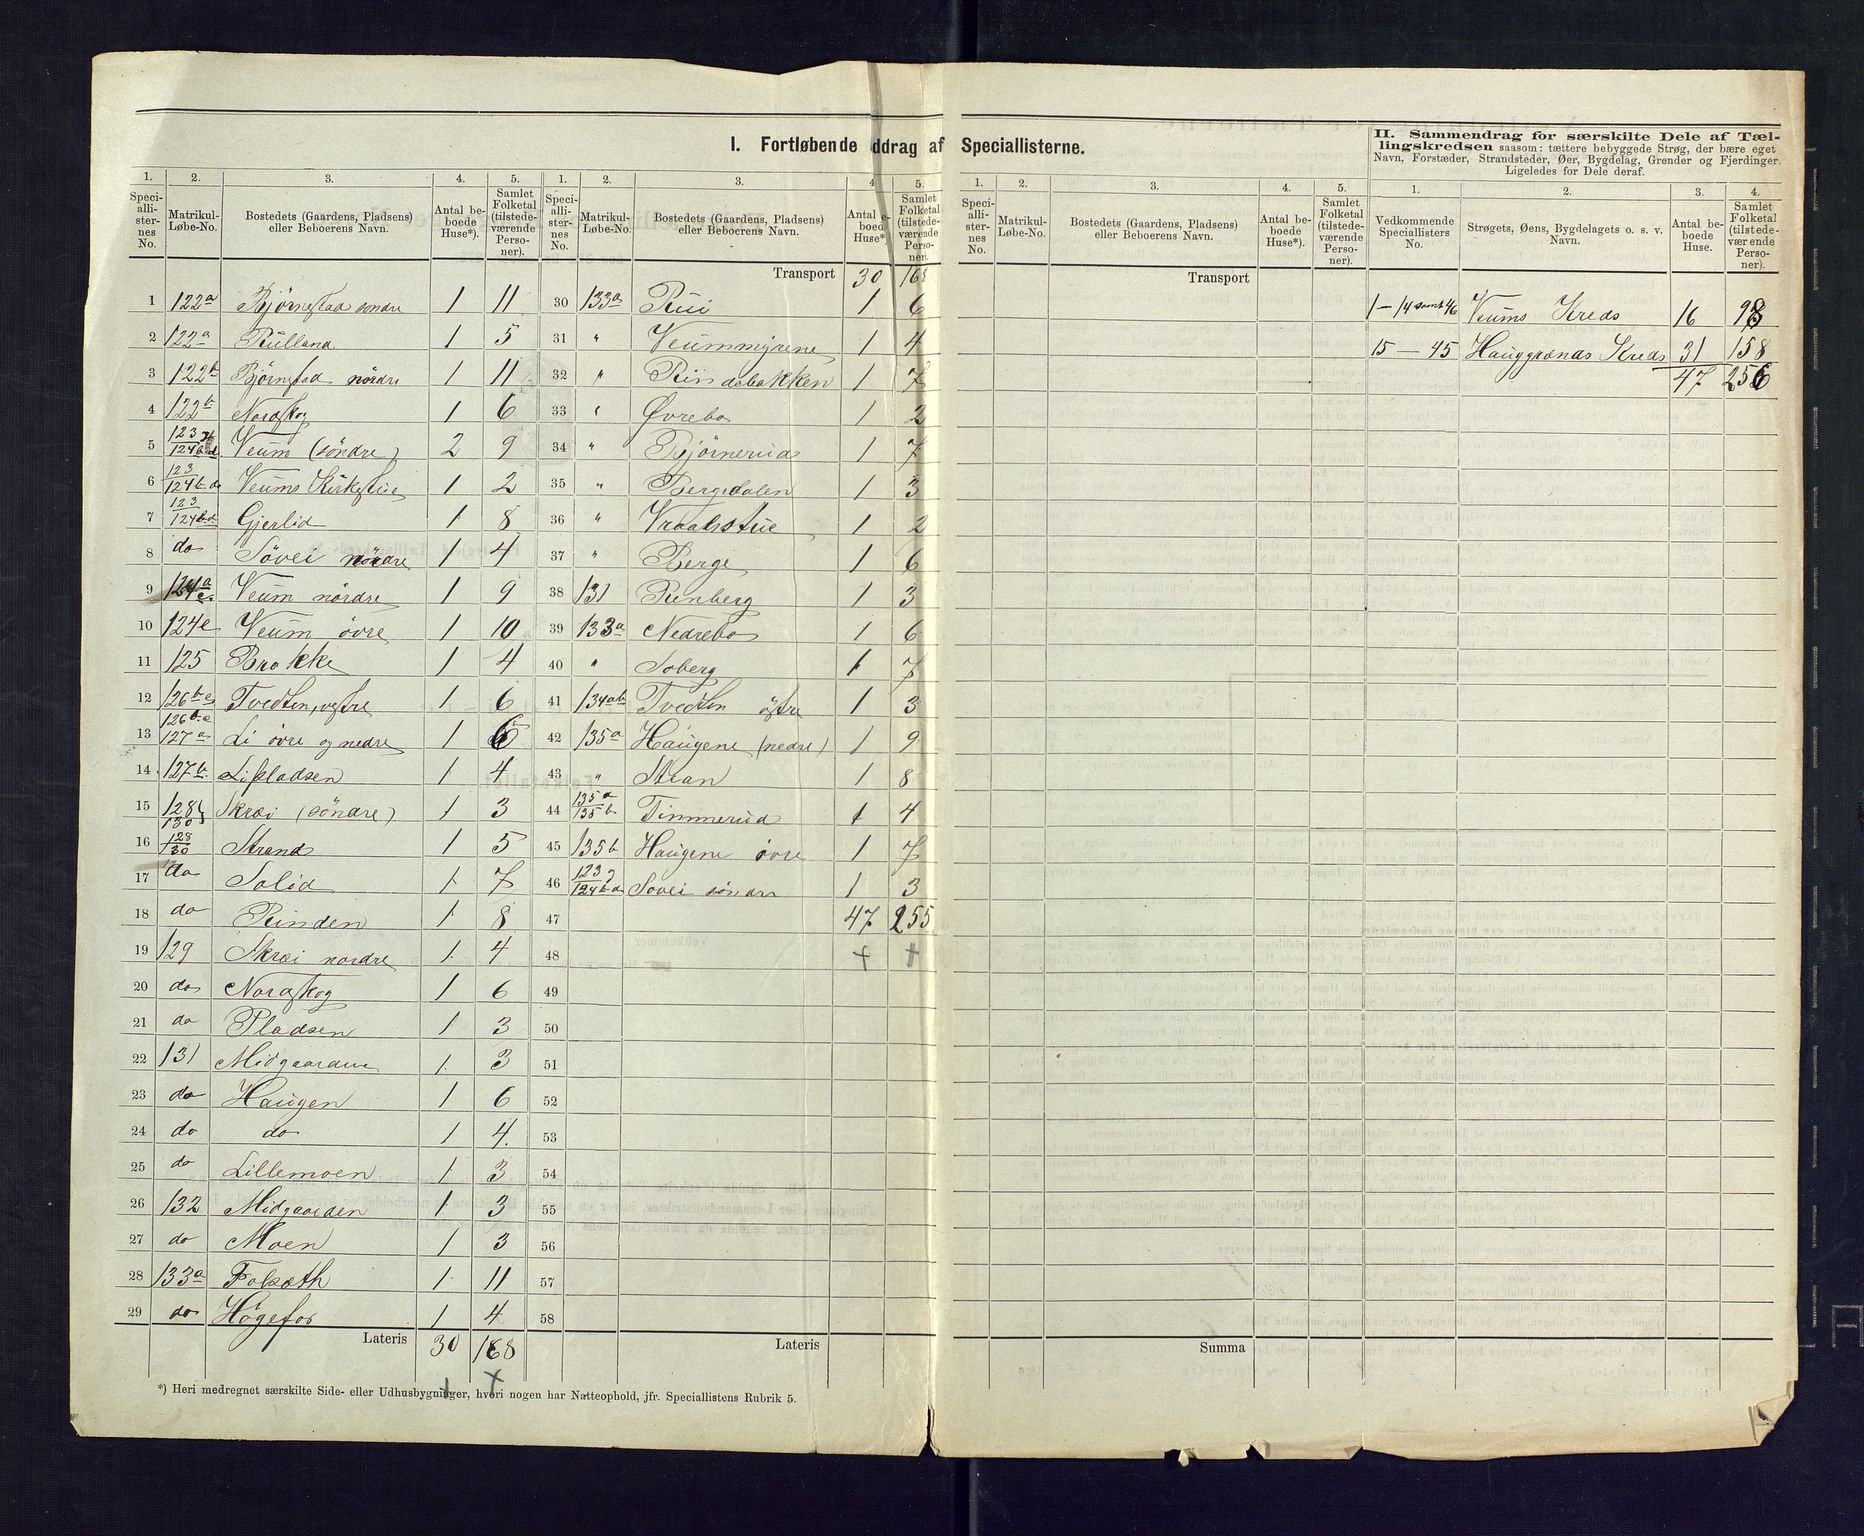 I. Fortløbende ddrag af Speciallisterne.
II. Sammendrag for særskilte Dele af Tæl-
lingskredsen saasom: tættere bebyggede Strøg, der bære eget
Navn, Forstæder, Strandsteder, Øer, Bygdelag, Grender og Fjerdinger.
Ligeledes for Dele deraf.
1. 2. 3. 4. 5. 1. 2. 3. 4 5. 1. 2. 3. 4. 5. 1. 2. 3. 4.
Speci-alli-ster-nes No. Matrikul-Løbe-No. Bostedets (Gaardens, Pladsens) eller Beboerens Navn. Antal be-boede Huse*). Samlet Folketal (tilstede-værende Perso-ner).
Speci-alli-ster-nes No. Matrikul-Løbe-No. Bostedets (Gaardens, Pladsens) eller Beboerens Navn. Antal e-boed Huse* Samlet Folketal (tilstede-værende Perso-ner)
Speci-alli-ster-nes No. Matrikul-Løbe-No. Bostedets (Gaardens, Pladsens) eller Beboerens Navn. Antal be-boede Huse*). Samlet Folketal (tilstede-værende Perso-ner).
Vedkommende Speciallisters No. Strøgets, Øens, Bygdelagets o. s. v. Navn. Antal be-boede Huse. Samlet Folketal (tilstede-værende Perso-ner).
Transport 30 168
Transport
1 122a Bjørnstad søndre 1 11
2 122a Rulland 1 5
3 122b Bjørnstad nördre 1 11
4 122b Nordskog 1 6
5 123 124b-d Veum (söndre) 2 9
6 123 124b-d Veums Kirkestue 1 2
7 123 124b-d Gjerlid 1 8
8 do Sövei nördre 1 4
9 124a c. Veum nördre 1 9
10 124e Veum øvre 1 10
11 125 Brokke 1 4
12 126b-e Tvedten, vestre 1 6
13 126b-e 127a Li øvre og nedre 1 6
14 127b Lipladsen 1 4
15 128 130 Skrei (söndre) 1 3
16 128 130 Strand 1 5
17 do Solid 1 7
18 do Rinden 1 8
19 129 Skrei nordre 1 4
20 do Nordskog 1 6
21 do Pladsen 1 3
22 131 Midgaarden 1 3
23 do Haugen 1 6
24 do do 1 4.
25 do Lillemoen 1 3
26 132 Midgaarden 1 3
27 do Moen 1 3
28 133a Folsæth 1 11
29 do Høgefos 1 4
Lateris 30 168
30 133a Rui 1 6
31 " Veummyrene 1 4
32 " Rindebakken 1 7
33 " Øvrebø 1 2
34 " Bjørnerud 1 7
35 " Bergedalen 1 3
36 " Vraalstue 1 2
37 " Berge 1 6
38 131 Renberg 1 3
39 133a Nedrebø 1 6
40 " Soberg 1 7
41 134ab Tvedten östre 1 3
42 135a Haugene (nedre) 1 9
43 " Straan 1 8
44 135a 135b Timmerud 1 4
45 135b Haugene øvre 1 7
46 123 124b-d Sovei søndre 1 3
47 47 255
48
49
50
51
52
53
54
55
56
57
58
Lateris
Summa
1-14 samt 46 Veums Kreds 16 98
15-45 Hauggrænds Kreds 31 158
47 256
*) Heri medregnet særskilte Side- eller Udhusbygninger, hvori nogen har Natteophold, jfr. Speciallistens Rubrik 5.